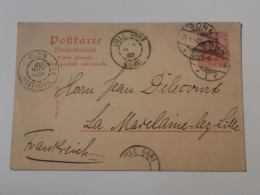 Postkarte
Weltpostverein
Carte postale
Union postale universelle
BONN
LILLE GARE
Herrn Jean Delecourt
La Madelaine-lez-Lille
Frankreich
LILLE GARE